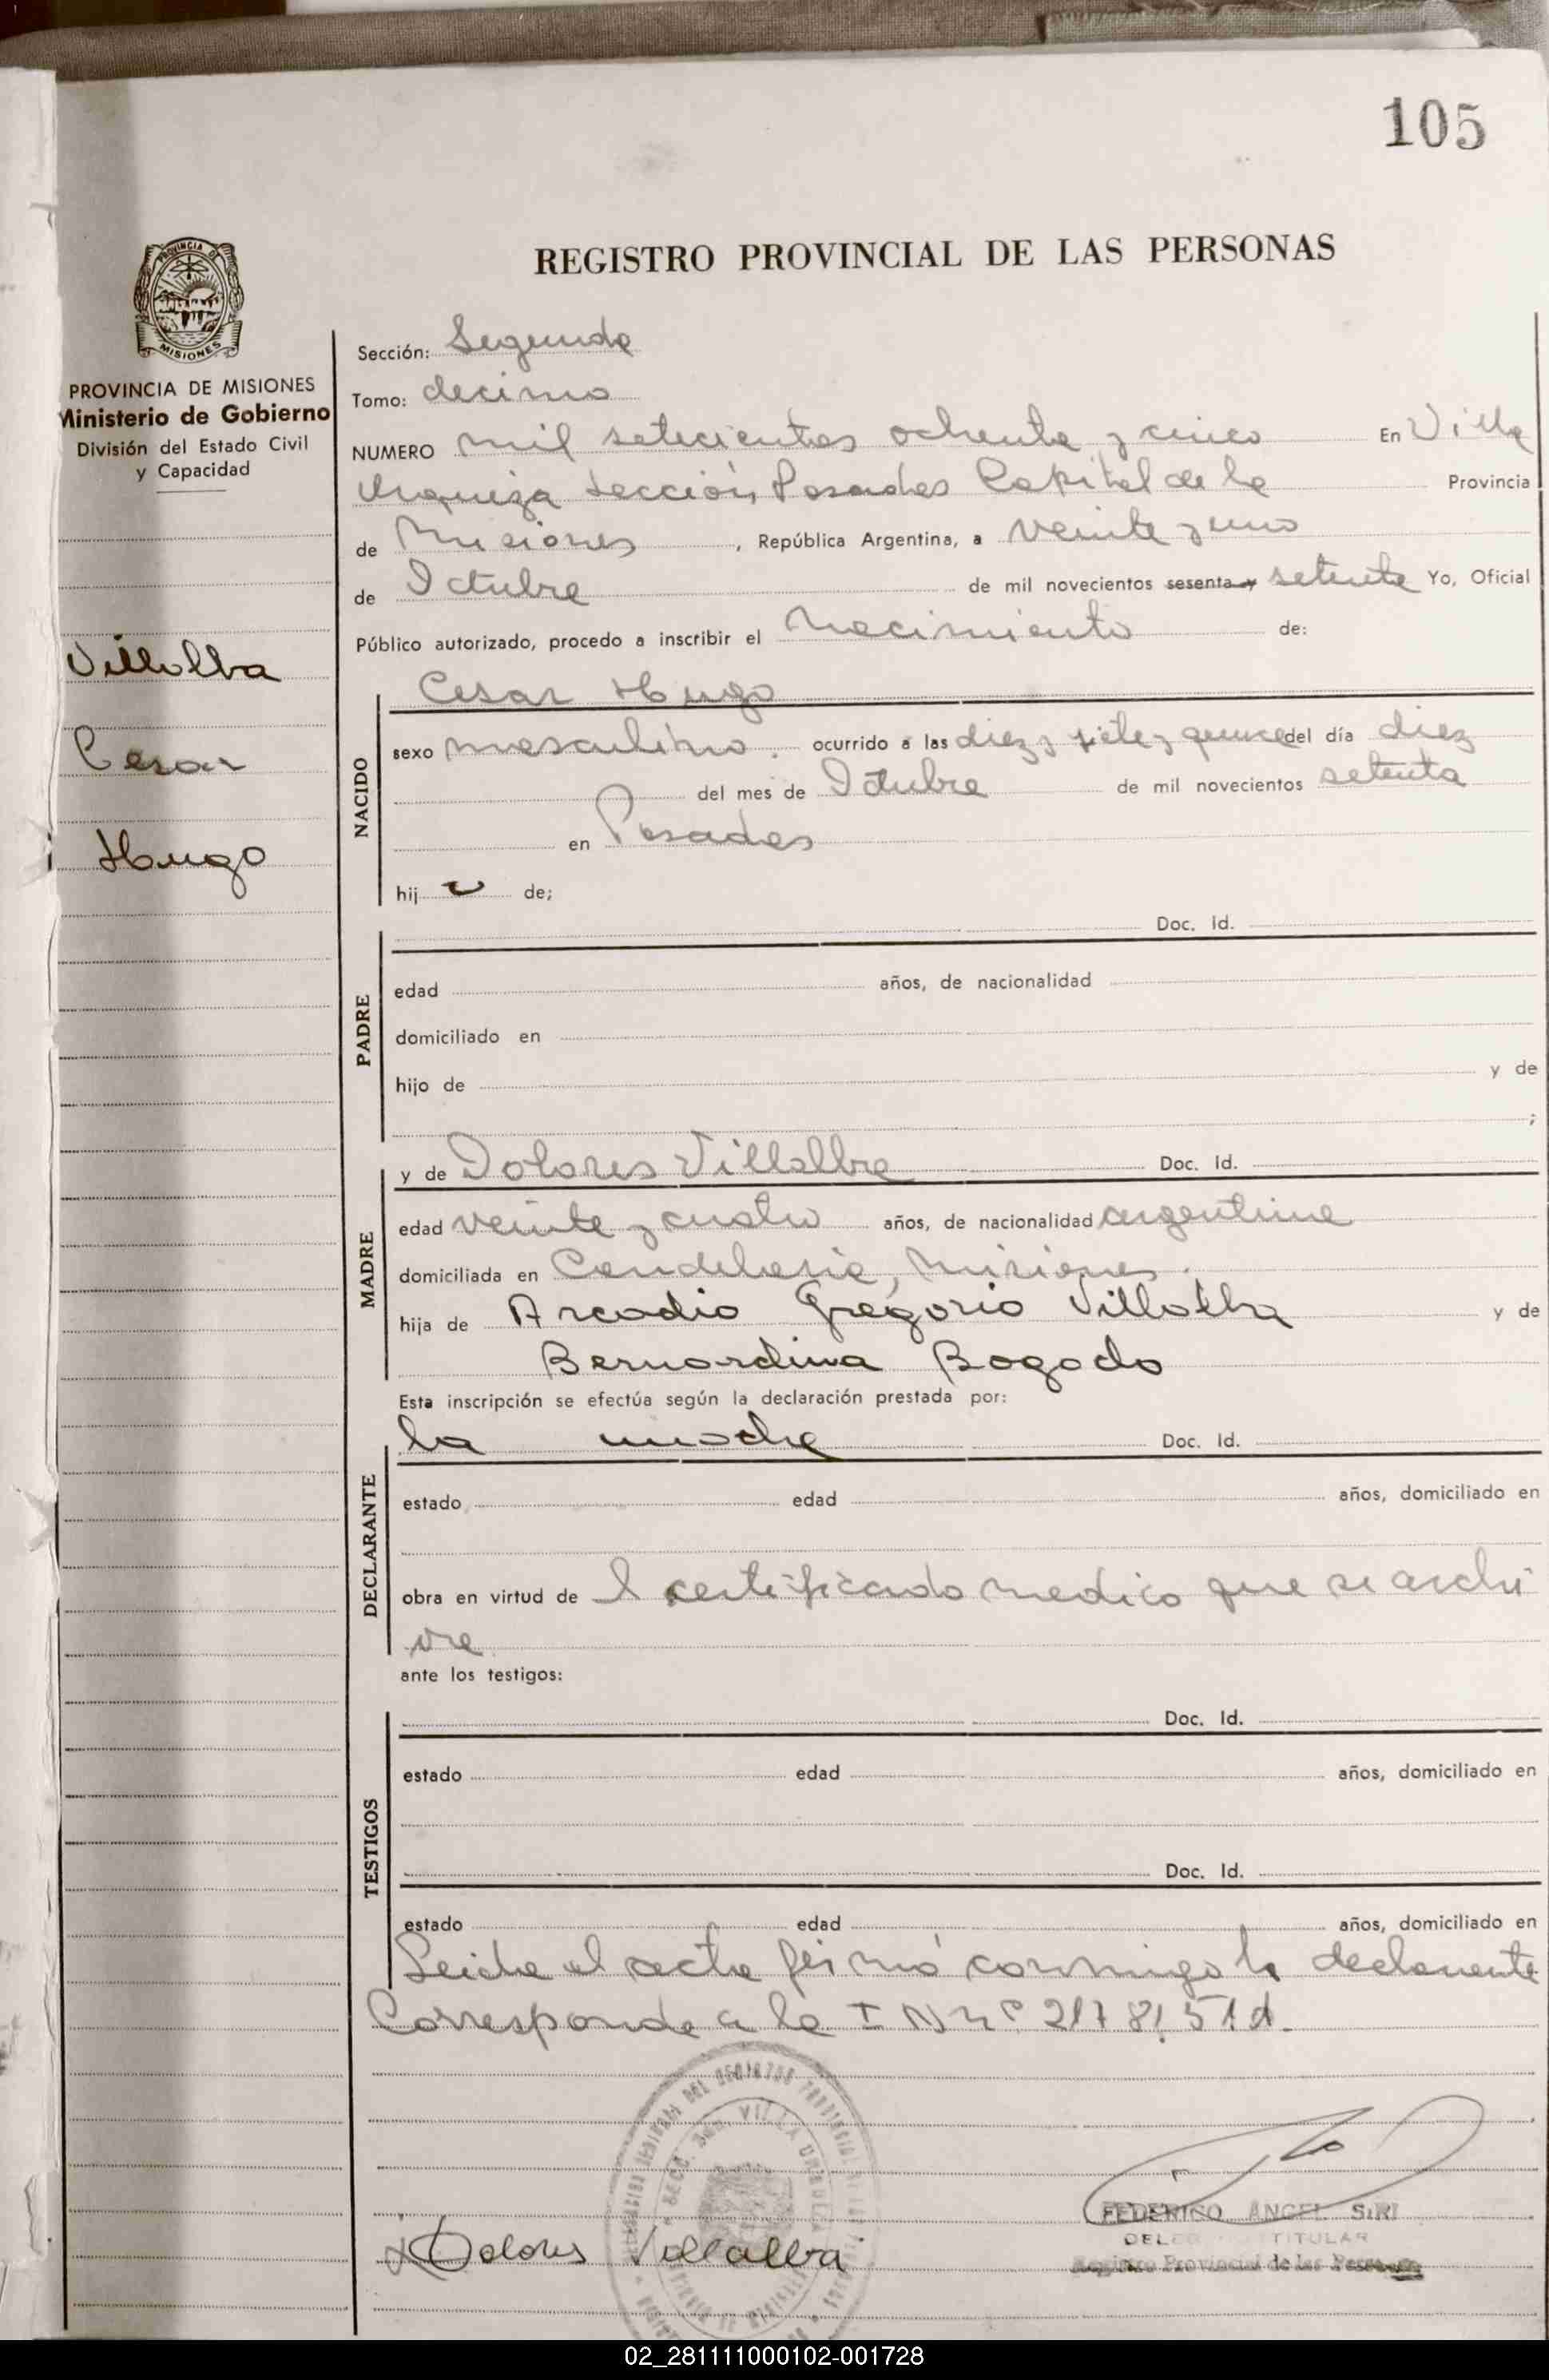 105
REGISTRO PROVINCIAL DE LAS PERSONAS
PROVINCIA DE MISIONES
PROVINCIA DE MISIONES
Ministerio de Gobierno
División del Estado Civil
y Capacidad
Villalba
Cesar
Hugo
Sección: Segunda
Tomo: decimo
NUMERO mil setecientos ochenta y cinco En Villa
Urquiza Sección, Posadas Capital de la Provincia
de Misiones, República Argentina, a veinte y uno
de Octubre de mil novecientos sesenta y setenta Yo, Oficial
Público autorizado, procedo a inscribir el Nacimiento de:
Cesar Hugo
NACIDO
sexo masculino. ocurrido a las diez y siete y quince del día diez
del mes de Octubre de mil novecientos setenta
en Posadas
hij o de;
Doc. Id.
PADRE
edad años, de nacionalidad
domiciliado en
hijo de y de
;
y de Dolores Villalba Doc. Id.
MADRE
edad veinte y cuatro años, de nacionalidad argentina
domiciliada en Candelaria, Misiones.
hija de Arcadio Gregorio Villalba y de
Bernardina Bogado
Esta inscripción se efectúa según la declaración prestada por:
la madre Doc. Id.
DECLARANTE
estado edad años, domiciliado en
obra en virtud de l certificado medico que se archi
va
ante los testigos:
Doc. Id.
TESTIGOS
estado edad años, domiciliado en
Doc. Id.
estado edad años, domiciliado en
Leida el acta firmó conmigo la declarante
Corresponde a la I N nº
VILLA URQUIZA
FEDERICO ANGEL SIRI
TITULAR
Registro Provincial de las Personas
Dolores Villalba
02_281111000102-001728